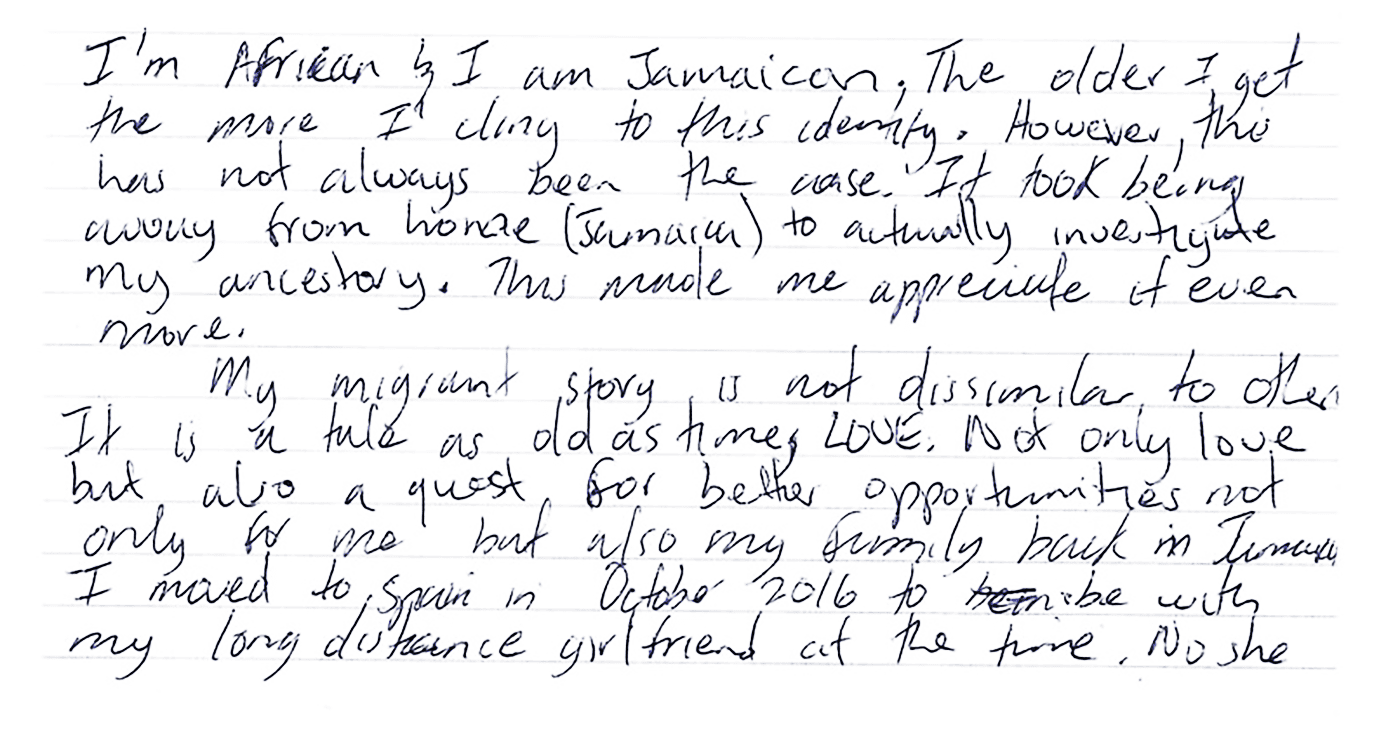 I'm African & I am Jamaican. The older I get
the more I cling to this identity. However, this
has not always been the case. It took being
away from home (Jamaica) to actually investigate
my ancestory. This made me appreciate it even
more.
My migrant story is not dissimilar to other
It is a tale as old as time, LOVE. Not only love
but also a quest for better opportunities not
only for me but also my family back in Jamaica
I moved to Spain in October 2016 to be with
my long distance girlfriend at the time. No she